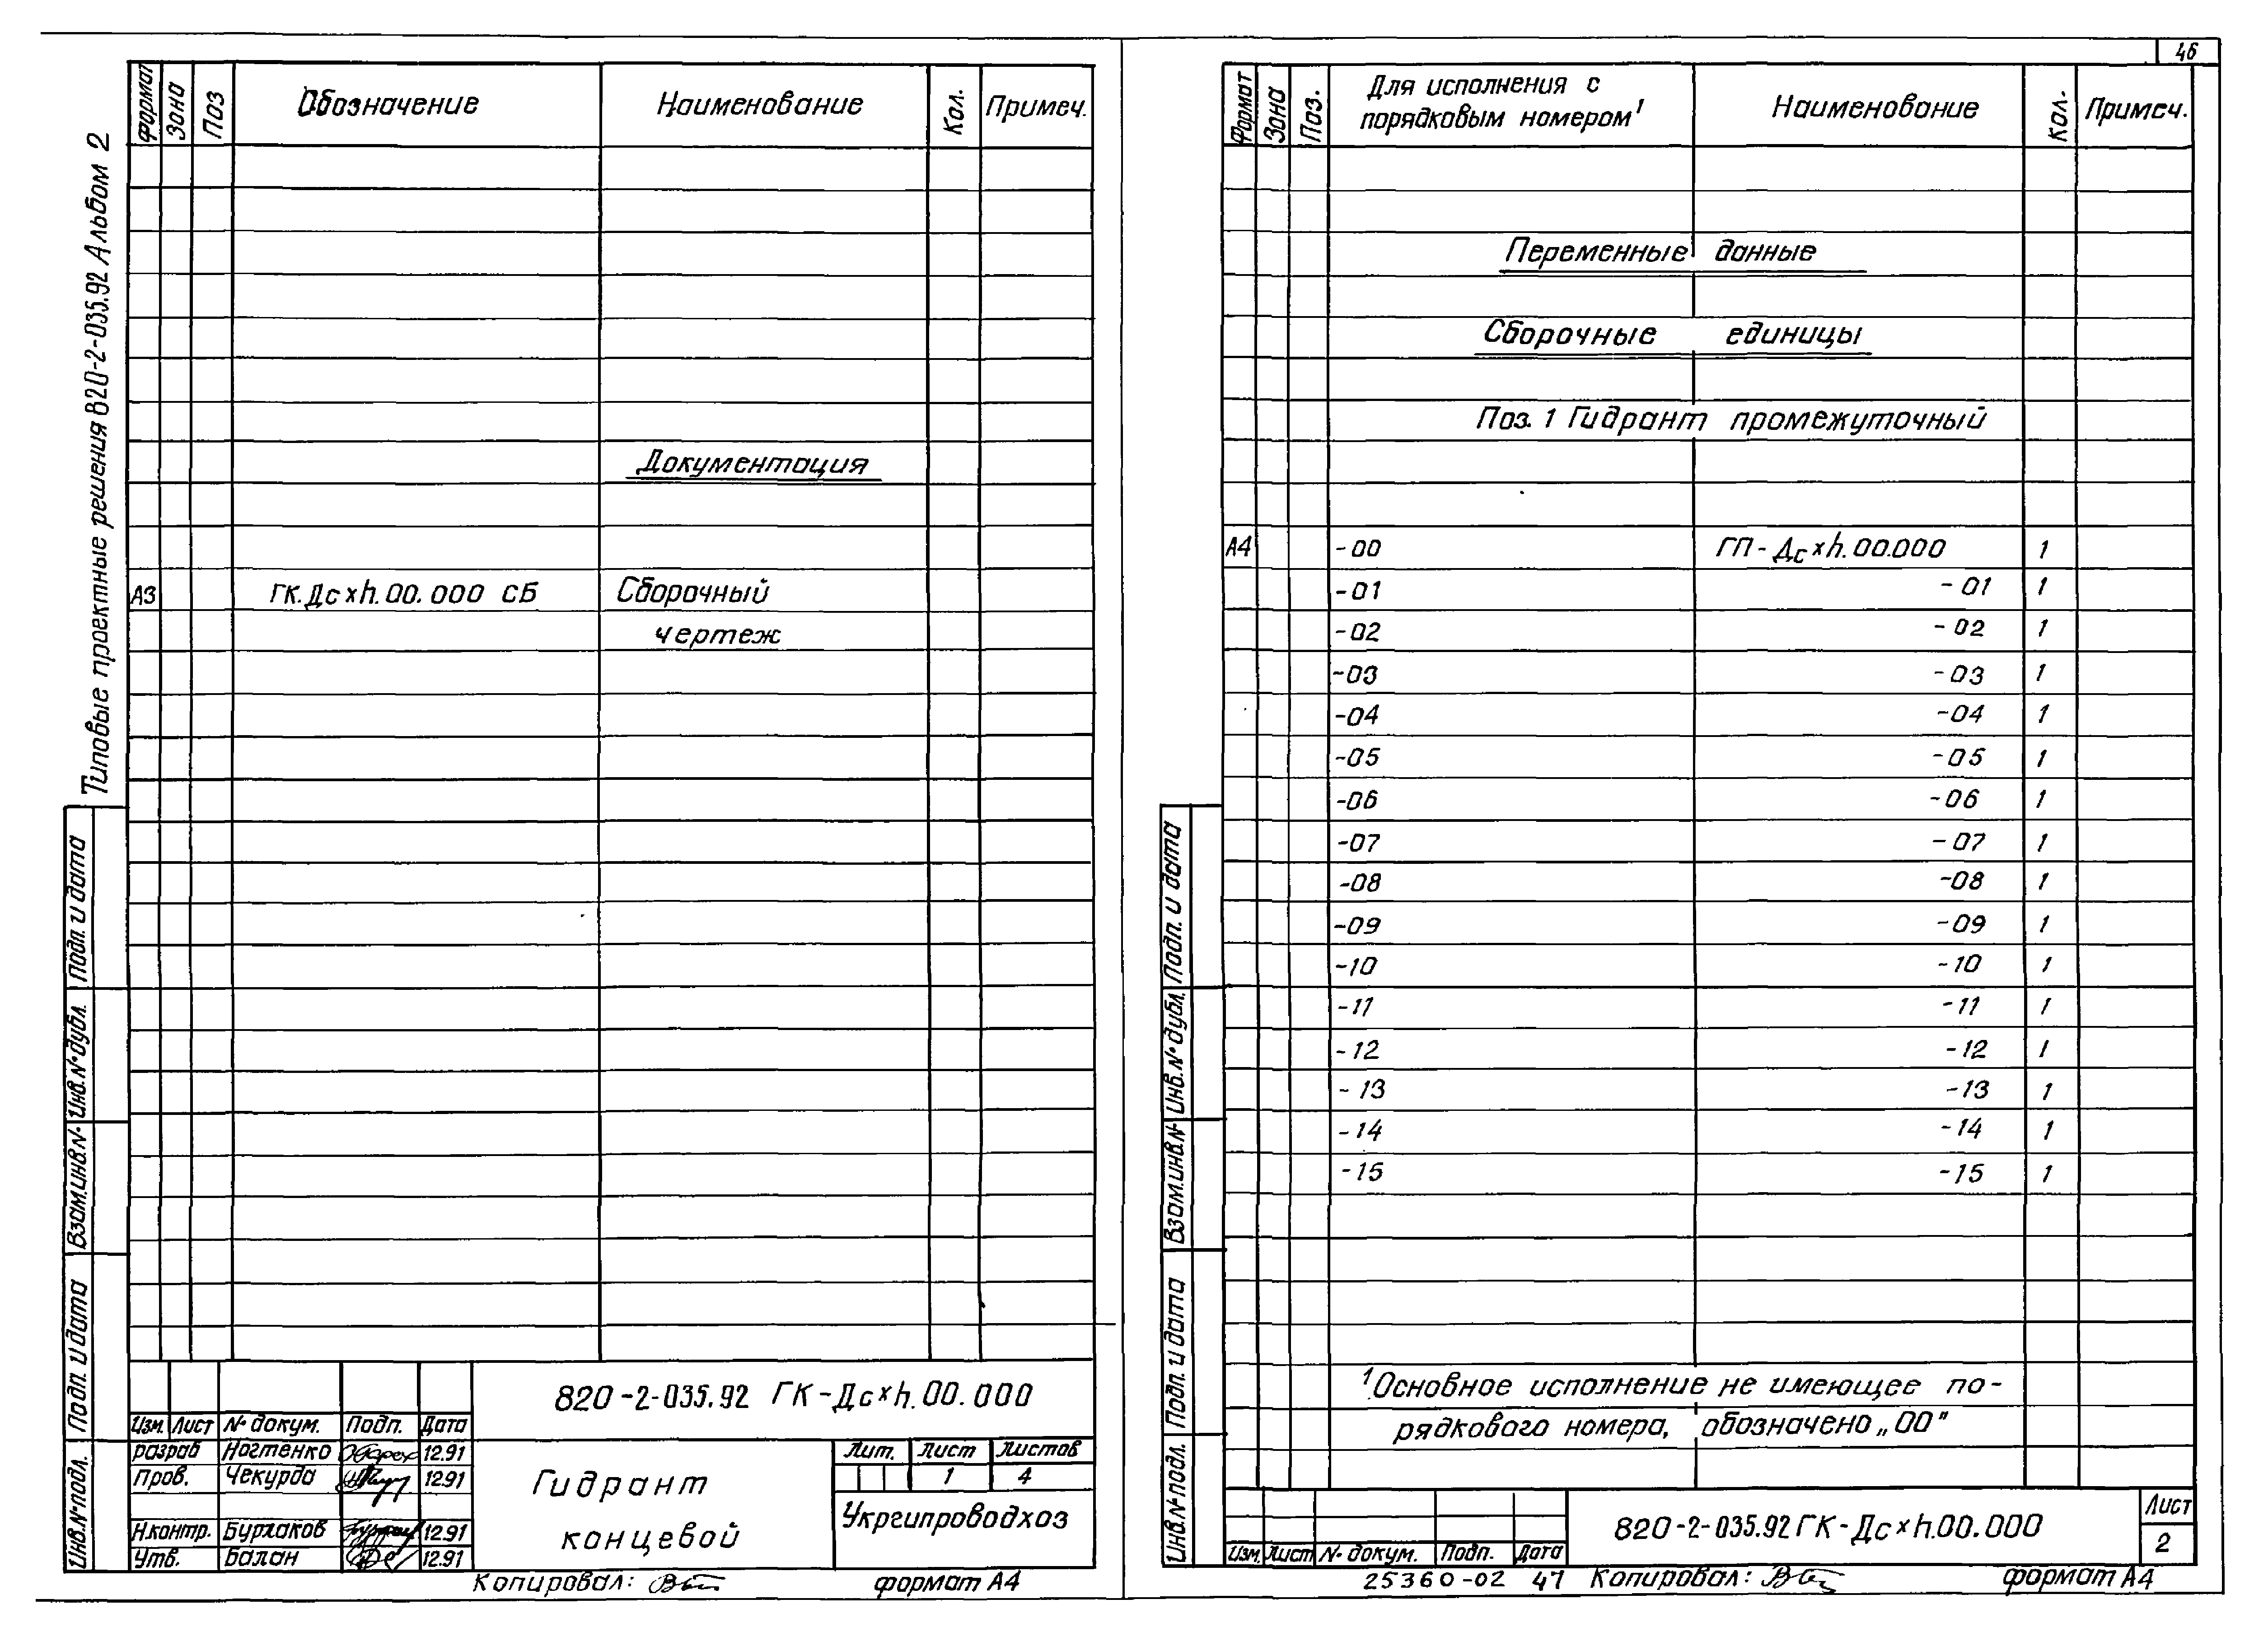 46
Типовые проектные решения 820-2-035.92 Альбом 2
Формат Зона Поз Обозначение Наименование Кол. Примеч.
Документация
А3 ГК.Дс×h.00.000 СБ Сборочный
чертеж
Подп. и дата
Инв.№дубл.
Взам.инв.№
Подп. и дата
Инв.№подл.
820-2-035.92 ГК-Дс×h.00.000
Изм. Лист № докум. Подп. Дата
разраб Ногтенко 12.91
Пров. Чекурда 12.91
Н.контр. Бурлаков 12.91
Утв. Балан 12.91
Гидрант
концевой
Лит. Лист Листов
1 4
Укргипроводхоз
Копировал:
формат А4
Формат Зона Поз. Для исполнения с
порядковым номером¹ Наименование Кол. Примеч.
Переменные данные
Сборочные единицы
Поз. 1 Гидрант промежуточный
А4 -00 ГП-Дс×h.00.000 1
-01 -01 1
-02 -02 1
-03 -03 1
-04 -04 1
-05 -05 1
-06 -06 1
-07 -07 1
-08 -08 1
-09 -09 1
-10 -10 1
-11 -11 1
-12 -12 1
-13 -13 1
-14 -14 1
-15 -15 1
¹Основное исполнение не имеющее по-
рядкового номера, обозначено „00"
Подп. и дата
Инв.№дубл.
Взам.инв.№
Подп. и дата
Инв.№подл.
Изм. Лист № докум. Подп. Дата
820-2-035.92 ГК-Дс×h.00.000
Лист
2
25360-02 47 Копировал:
формат А4